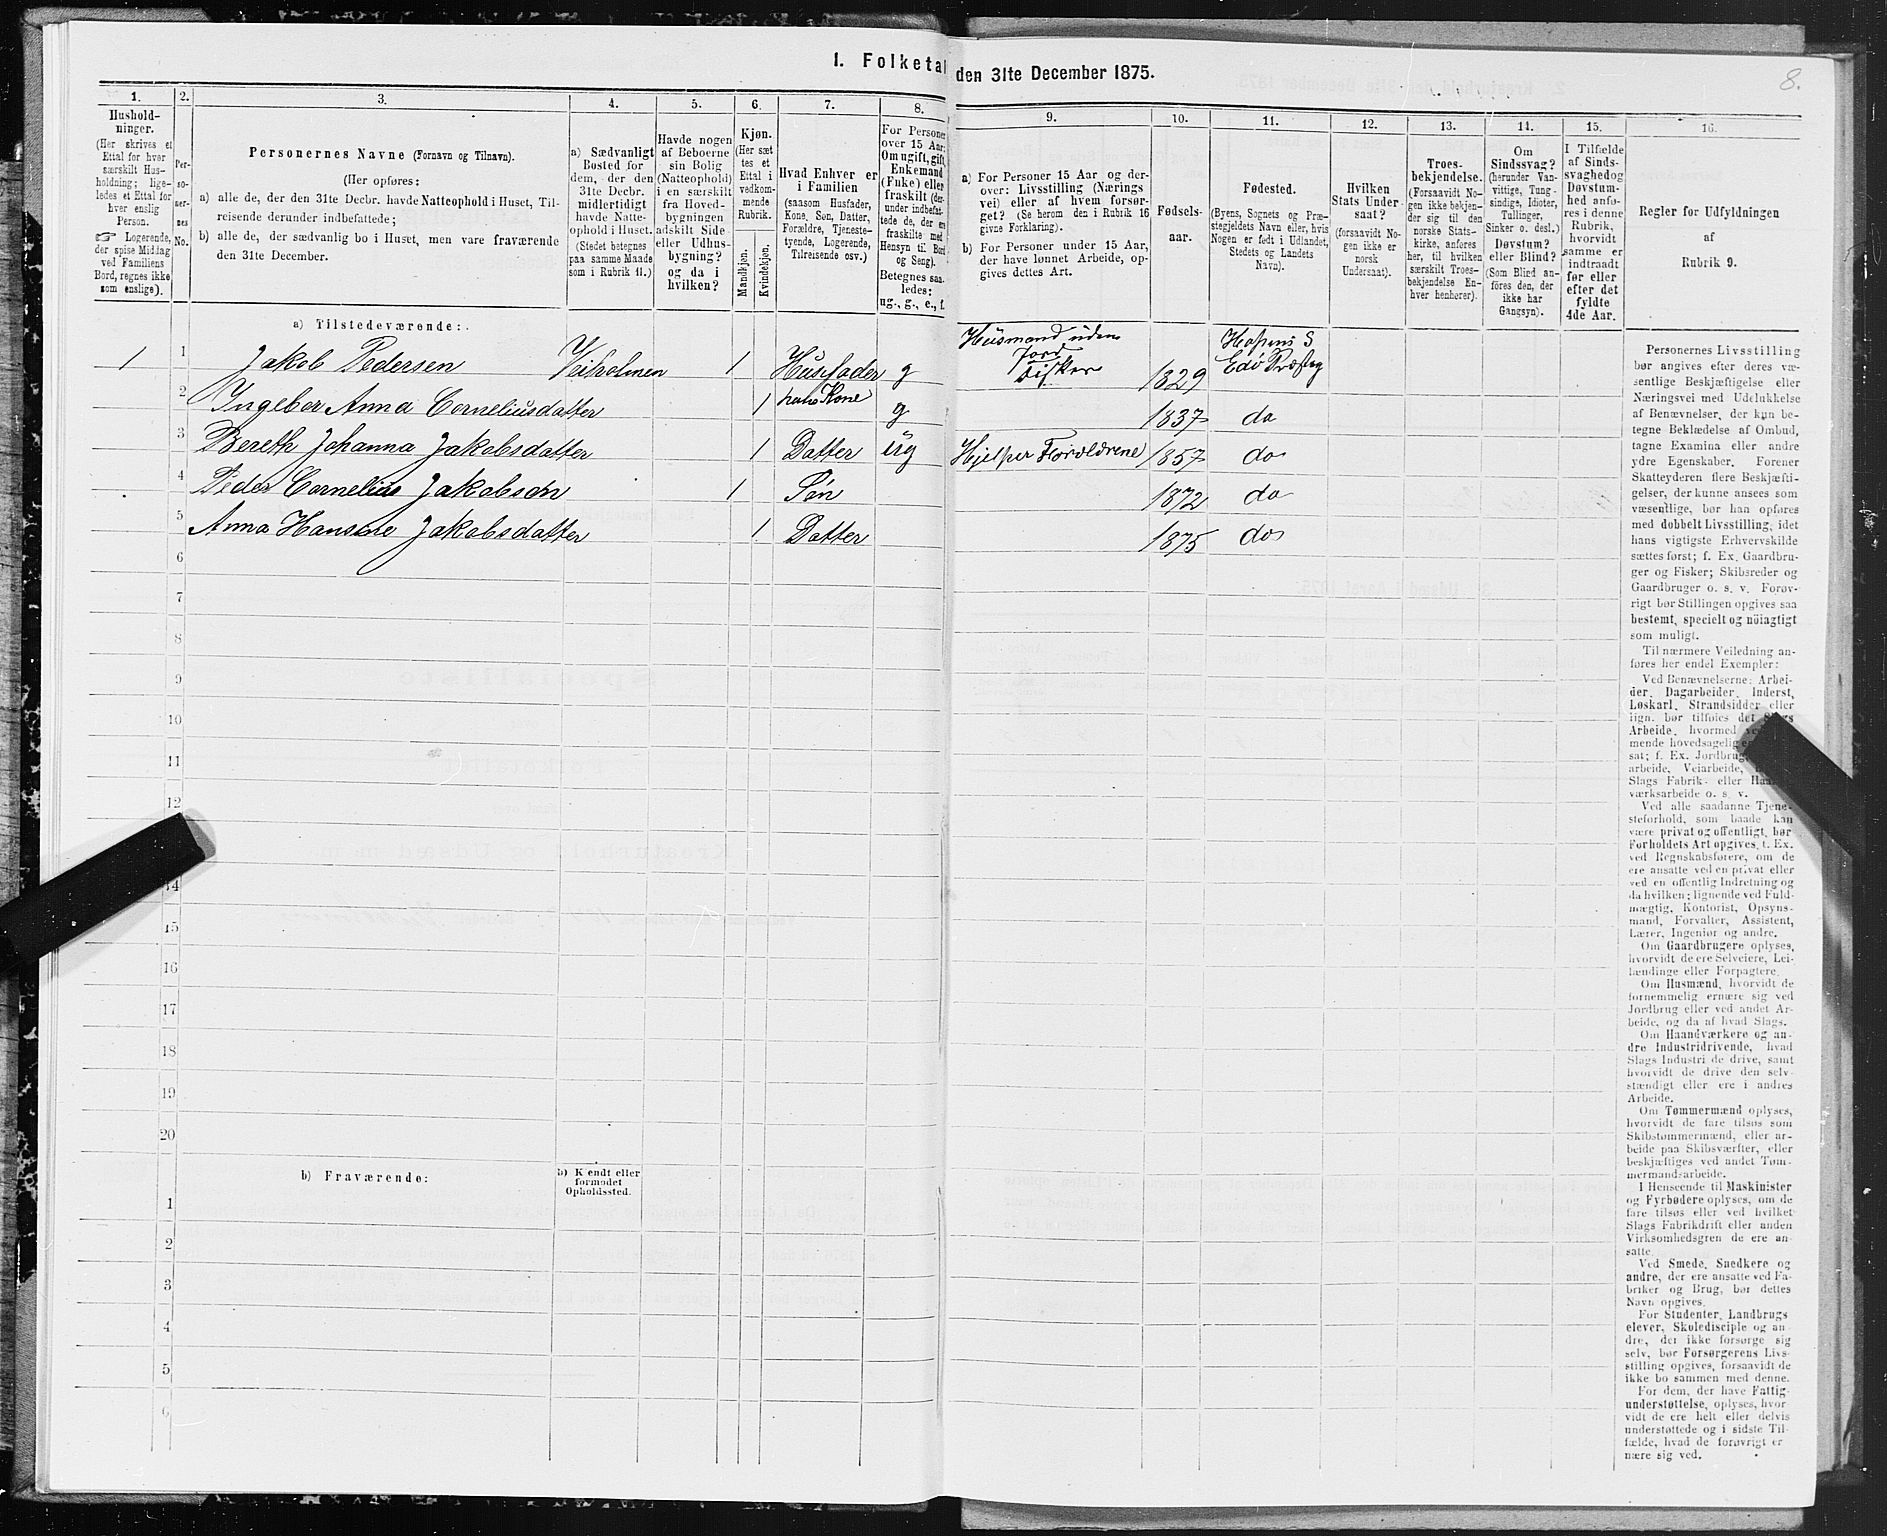 1. Folketal den 31te December 1875.
8.
1.
Hushold-
ninger.
(Her skrives et
Ettal for hver
særskilt Hus-
holdning; lige-
ledes et Ettal for
hver enslig
Person.
☞ Logerende,
der spise Middag
ved Familiens
Bord, regnes ikke
som enslige).
2.
Per-
so-
ner-
nes
No.
3.
Personernes Navne (Fornavn og Tilnavn).
(Her opføres:
a) alle de, der den 31te Decbr. havde Natteophold i Huset, Til-
reisende derunder indbefattede;
b) alle de, der sædvanlig bo i Huset, men vare fraværende
den 31te December.
4.
a) Sædvanligt
Bosted for
dem, der den
31te Decbr.
midlertidigt
havde Natte-
ophold i Huset.
(Stedet betegnes
paa samme Maade
som i Rubrik 11.)
5.
Havde nogen
af Beboerne
sin Bolig
(Natteophold)
i en særskilt
fra Hoved-
bygningen
adskilt Side-
eller Udhus-
bygning?
og da i
hvilken?
6.
Kjøn.
(Her sæt
tes et
Ettal i
vedkom-
mende
Rubrik.
Mandkjøn.
Kvindekjøn.
7.
Hvad Enhver er
i Familien
(saasom Husfader,
Kone, Søn, Datter,
Forældre, Tjeneste-
tyende, Logerende,
Tilreisende osv.)
8.
For Personer
over 15 Aar:
Om ugift, gift,
Enkemand
(Enke) eller
fraskilt (der-
under indbefat-
tede de, der ere
fraskilte med
Hensyn til Bord
og Seng).
Betegnes saa-
ledes:
ug., g., e., f.
9.
a) For Personer 15 Aar og der-
over: Livsstilling (Nærings
vei) eller af hvem forsør-
get? (Se herom den i Rubrik 16
givne Forklaring).
b) For Personer under 15 Aar,
der have lønnet Arbeide, op-
gives dettes Art.
10.
Fødsels-
aar.
11.
Fødested.
(Byens, Sognets og Præ-
stegjeldets Navn eller, hvis
Nogen er født i Udlandet,
Stedets og Landets
Navn).
12.
Hvilken
Stats Under-
saat?
(forsaavidt No-
gen ikke er
norsk
Undersaat).
13.
Troes-
bekjendelse.
(Forsaavidt No-
gen ikke bekjen-
der sig til den
norske Stats-
kirke, anføres
her, til hvilken
særskilt Troes-
bekjendelse En-
hver henhører).
14.
Om
Sindssvag?
(herunder Van-
vittige, Tung-
sindige, Idioter,
Tullinger,
Sinker o. desl.)
Døvstum?
eller Blind?
(Som Blind an-
føres den, der
ikke har
Gangsyn).
15.
I Tilfælde
af Sinds-
svaghed og
Døvstum-
hed anfø-
res i denne
Rubrik,
hvorvidt
samme er
indtraadt
før eller
efter det
fyldte
4de Aar.
16.
Regler for Udfyldningen
af
Rubrik 9.
a) Tilstedeværende:
1 1 Jakob Pedersen Veiholmen 1 Husfader g Husmand uden Jord Fisker 1829 Hopens S Edø Præstg
2 Ingeber Anna Corneliusdatter 1 hans Kone g 1837 do
3 Bereth Johanna Jakobsdatter 1 Datter ug Hjelper Forældrene 1857 do
4 Peder Cornelius Jakobsøn 1 Søn 1872 do
5 Anna Hansine Jakobsdatter 1 Datter 1875 do
6
7
8
9
10
11
12
14
15
16
17
18
19
20
b) Fraværende:
b) Kjendt eller
formodet
Opholdssted.
1
2
3
4
5
6
Personernes Livsstilling
bør angives efter deres væ-
sentlige Beskjæftigelse eller
Næringsvei med Udelukkelse
af Benævnelser, der kun be-
tegne Beklædelse af Ombud,
tagne Examina eller andre
ydre Egenskaber. Forener
Skatteyderen flere Beskjæfti-
gelser, der kunne ansees som
væsentlige, bør han opføres
med dobbelt Livsstilling, idet
hans vigtigste Erhvervskilde
sættes først; f. Ex. Gaardbru-
ger og Fisker; Skibsreder og
Gaardbruger o. s. v. Forøv-
rigt bør Stillingen opgives saa
bestemt, specielt og nøiagtigt
som muligt.
Til nærmere Veiledning an-
føres her endel Exempler:
Ved Benævnelserne: Arbei-
der, Dagarbeider, Inderst,
Løskarl, Strandsidder eller
lign. bør tilføies det Slags
Arbeide, hvormed
mende hovedsagelig
sat; f. Ex. Jordbrug
arbeide, Veiarbeide,
Slags Fabrik- eller
værksarbeide o. s. v.
Ved alle saadanne Tjene-
steforhold, som baade kan
være privat og offentligt, bør
Forholdets Art opgives, f. Ex.
ved Regnskabsførere, om de
ere ansatte ved en privat eller
ved en offentlig Indretning og
da hvilken; lignende ved Fuld-
mægtig, Kontorist, Opsyns-
mand, Forvalter, Assistent,
Lærer, Ingeniør og andre.
Om Gaardbrugere oplyses,
hvorvidt de ere Selveiere, Lei-
lændinge eller Forpagtere.
Om Husmænd, hvorvidt de
fornemmelig ernære sig ved
Jordbrug eller ved andet Ar-
beide, og da af hvad Slags.
Om Haandværkere og an-
dre Industridrivende, hvad
Slags Industri de drive, samt
hvorvidt de drive den selv-
stændigt eller ere i andres
Arbeide.
Om Tømmermænd oplyses,
hvorvidt de fare tilsøs som
Skibstømmermænd, eller ar-
beide paa Skibsværfter, eller
beskjæftiges ved andet Tøm-
mermandsarbeide.
I Henseende til Maskinister
og Fyrbødere oplyses, om de
fare tilsøs eller ved hvilket
Slags Fabrikdrift eller anden
Virksomhedsgren de ere an-
satte.
Ved Smede, Snedkere og
andre, der ere ansatte ved Fa-
briker og Brug, bør dettes
Navn opgives.
For Studenter, Landbrugs
elever, Skoledisciple og an-
dre, der ikke forsørge sig
selv, bør Forsørgerens Livs-
stilling opgives, forsaavidt de
ikke bo sammen med denne.
For dem, der have Fattig-
understøttelse, oplyses, hvor-
vidt de ere helt eller delvis
understøttede og i sidste Til-
fælde, hvad de forøvrigt er-
nære sig ved.